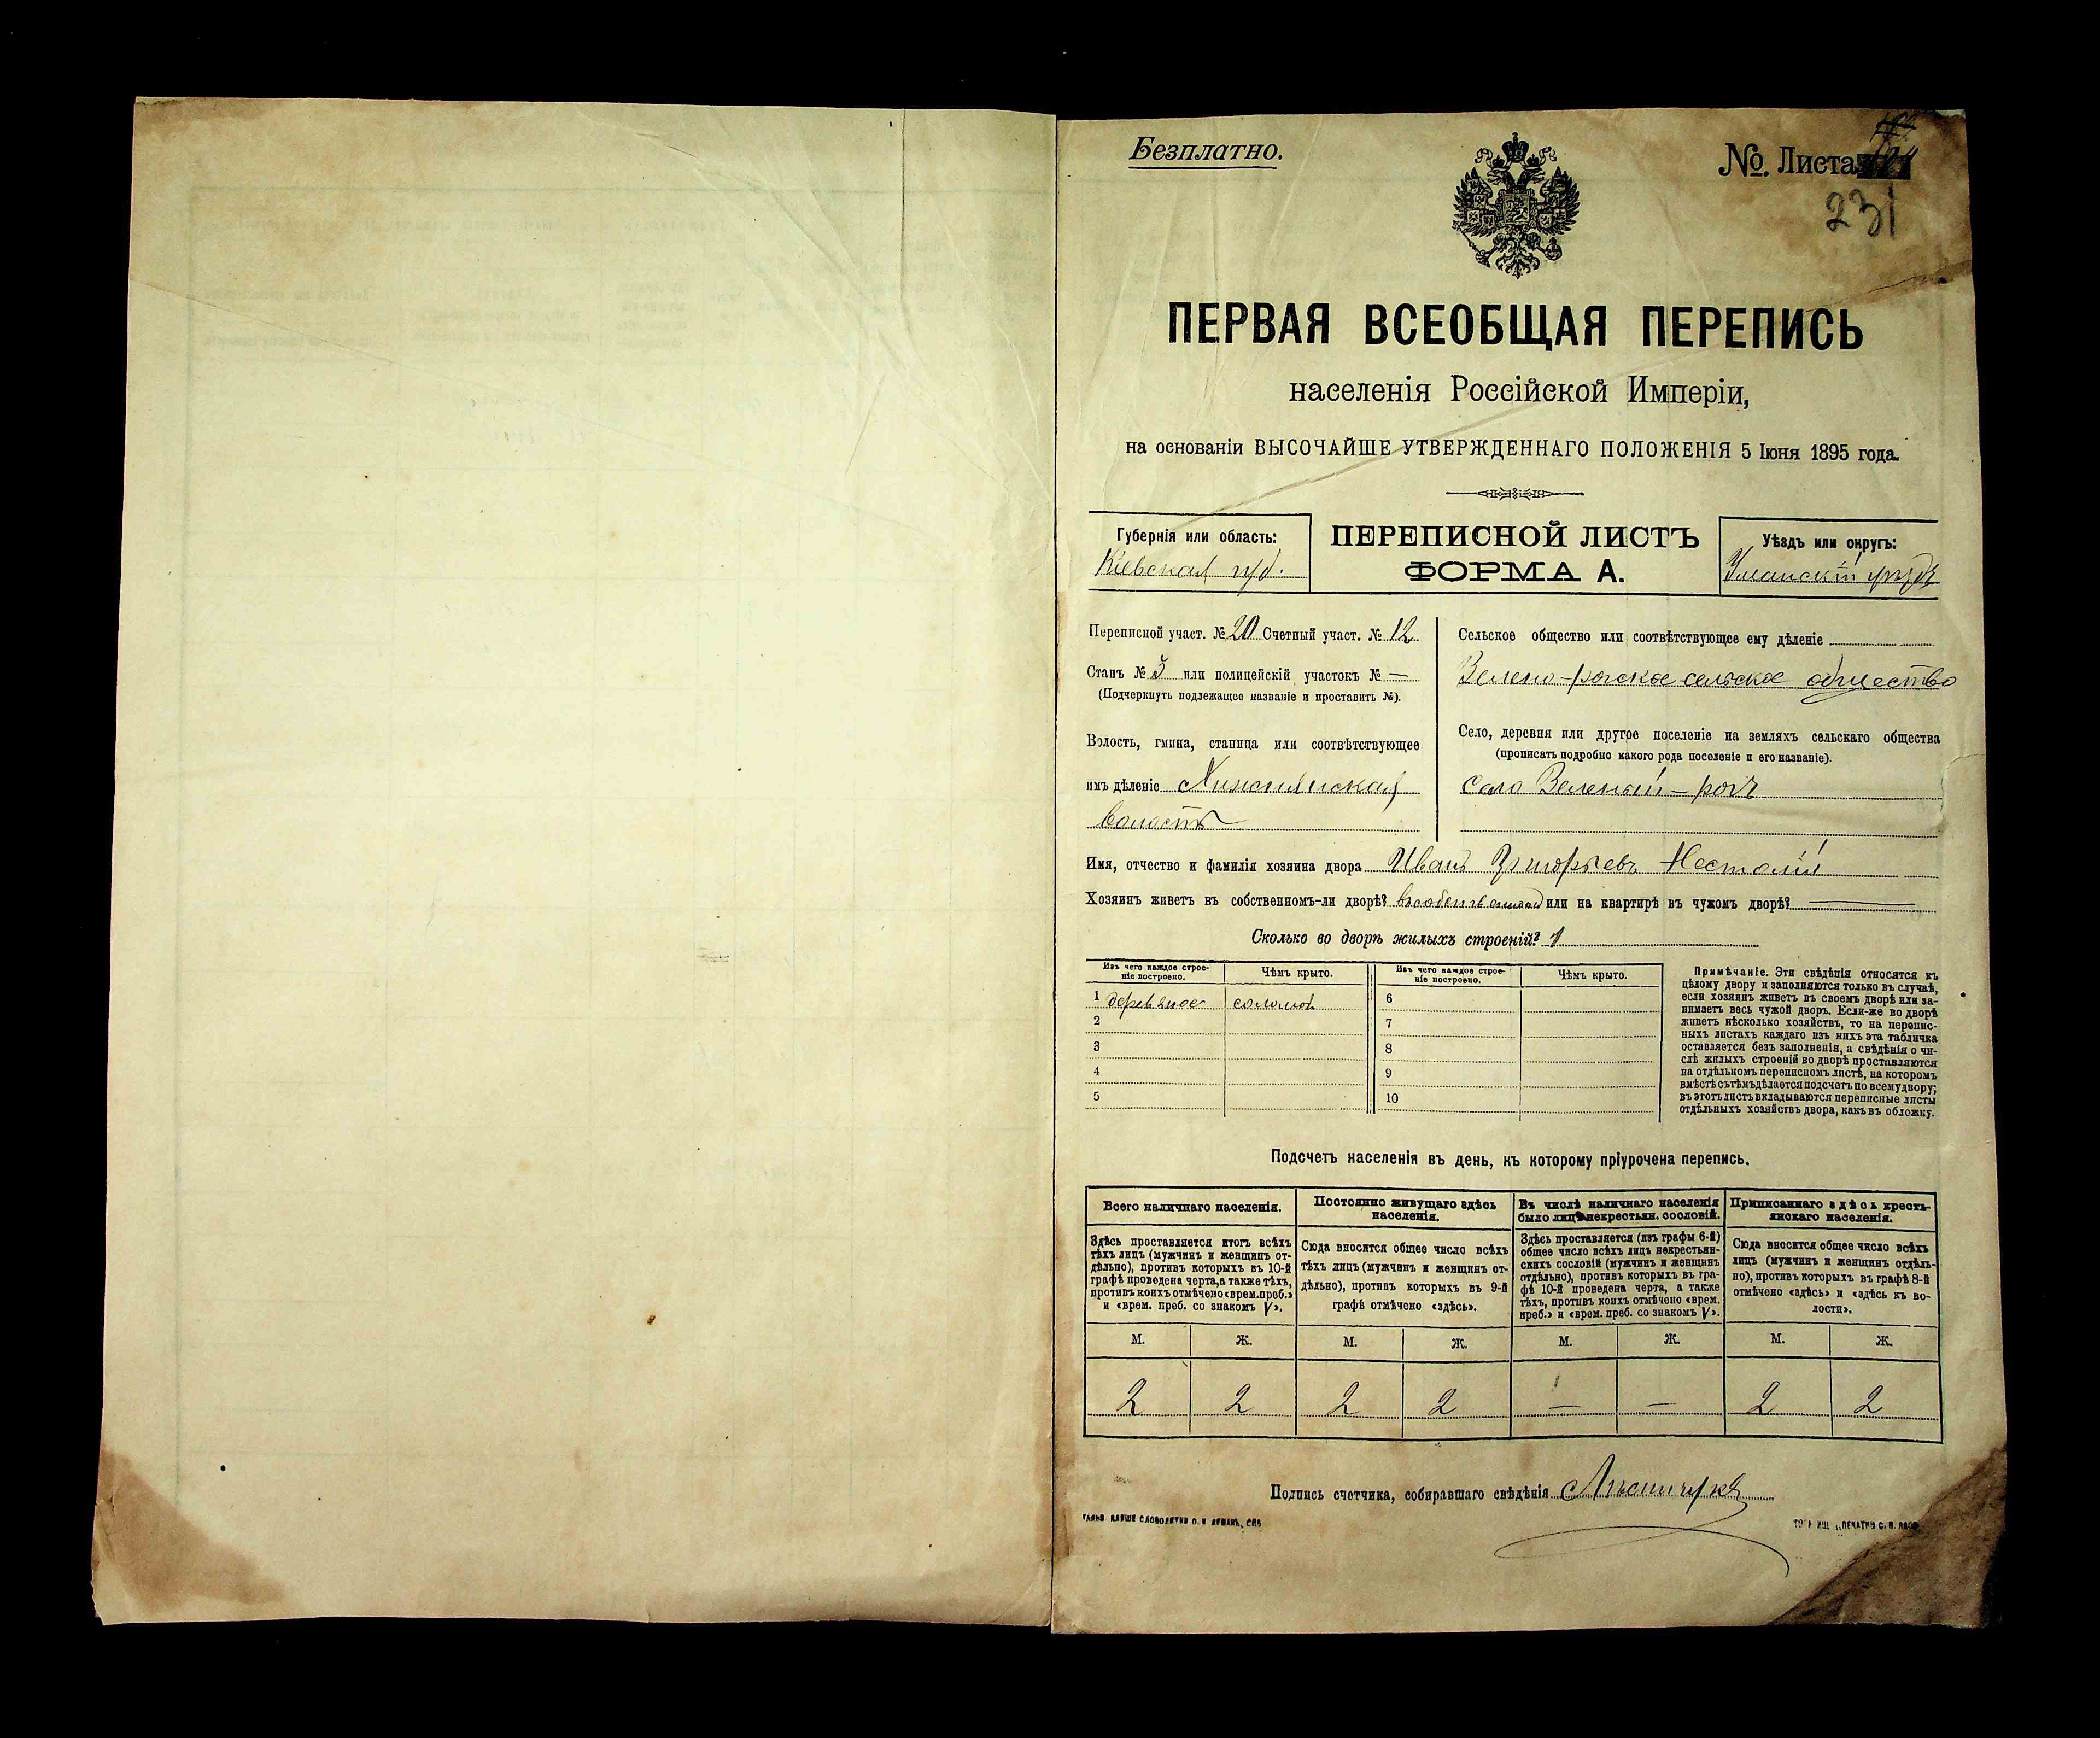 Безплатно.
№. Листа
231
ПЕРВАЯ ВСЕОБЩАЯ ПЕРЕПИСЬ
населенія Россійской Имперіи,
на основаніи ВЫСОЧАЙШЕ УТВЕРЖДЕННАГО ПОЛОЖЕНІЯ 5 Іюня 1895 года.
Губернія или область:
Кіевская губ.
ПЕРЕПИСНОЙ ЛИСТЪ
ФОРМА А.
Уѣздъ или округъ:
Уманскій уѣздъ
Переписной участ. № 20 Счетный участ. № 12
Станъ № 3 или полицейскій участокъ № —
(Подчеркнуть подлежащее названіе и проставить №).
Волость, гмина, станица или соотвѣтствующее
имъ дѣленіе
волость
Сельское общество или соотвѣтствующее ему дѣленіе
Зелено-рогское сельское общество
Село, деревня или другое поселеніе на земляхъ сельскаго общества
(прописать подробно какого рода поселеніе и его названіе).
Село Зеленый-рогъ
Имя, отчество и фамилія хозяина двора Иванъ Григорьевъ
Хозяинъ живетъ въ собственномъ-ли дворѣ? или на квартирѣ въ чужомъ дворѣ? —
Сколько во дворѣ жилыхъ строеній? 1
Изъ чего каждое строе-
ніе построено.
Чѣмъ крыто.
Изъ чего каждое строе-
ніе построено.
Чѣмъ крыто.
1 соломой
2
3
4
5
6
7
8
9
10
Примѣчаніе. Эти свѣдѣнія относятся къ
цѣлому двору и заполняются только въ случаѣ,
если хозяинъ живетъ въ своемъ дворѣ или за-
нимаетъ весь чужой дворъ. Если-же во дворѣ
живетъ нѣсколько хозяйствъ, то на перепис-
ныхъ листахъ каждаго изъ нихъ эта табличка
оставляется безъ заполненія, а свѣдѣнія о чи-
слѣ жилыхъ строеній во дворѣ проставляются
на отдѣльномъ переписномъ листѣ, на которомъ
вмѣстѣ съ тѣмъ дѣлается подсчетъ по всему двору;
въ этотъ листъ вкладываются переписные листы
отдѣльныхъ хозяйствъ двора, какъ въ обложку.
Подсчетъ населенія въ день, къ которому пріурочена перепись.
Всего наличнаго населенія.
Здѣсь проставляется итогъ всѣхъ
тѣхъ лицъ (мужчинъ и женщинъ от-
дѣльно), противъ которыхъ въ 10-й
графѣ проведена черта, а также тѣхъ,
противъ коихъ отмѣчено «врем. преб.»
и «врем. преб. со знакомъ V».
Постоянно живущаго здѣсь
населенія.
Сюда вносится общее число всѣхъ
тѣхъ лицъ (мужчинъ и женщинъ от-
дѣльно), противъ которыхъ въ 9-й
графѣ отмѣчено «здѣсь».
Въ числѣ наличнаго населенія
было лицъ некрестьян. сословій.
Здѣсь проставляется (изъ графы 6-й)
общее число всѣхъ лицъ некрестьян-
скихъ сословій (мужчинъ и женщинъ
отдѣльно), противъ которыхъ въ гра-
фѣ 10-й проведена черта, а также
тѣхъ, противъ коихъ отмѣчено «врем.
преб.» и «врем. преб. со знакомъ V».
Приписаннаго здѣсь кресть-
янскаго населенія.
Сюда вносится общее число всѣхъ
лицъ (мужчинъ и женщинъ отдѣль-
но), противъ которыхъ въ графѣ 8-й
отмѣчено «здѣсь» и «здѣсь къ во-
лости».
М. Ж. М. Ж. М. Ж. М. Ж.
2 2 2 2 — — 2 2
Подпись счетчика, собиравшаго свѣдѣнія